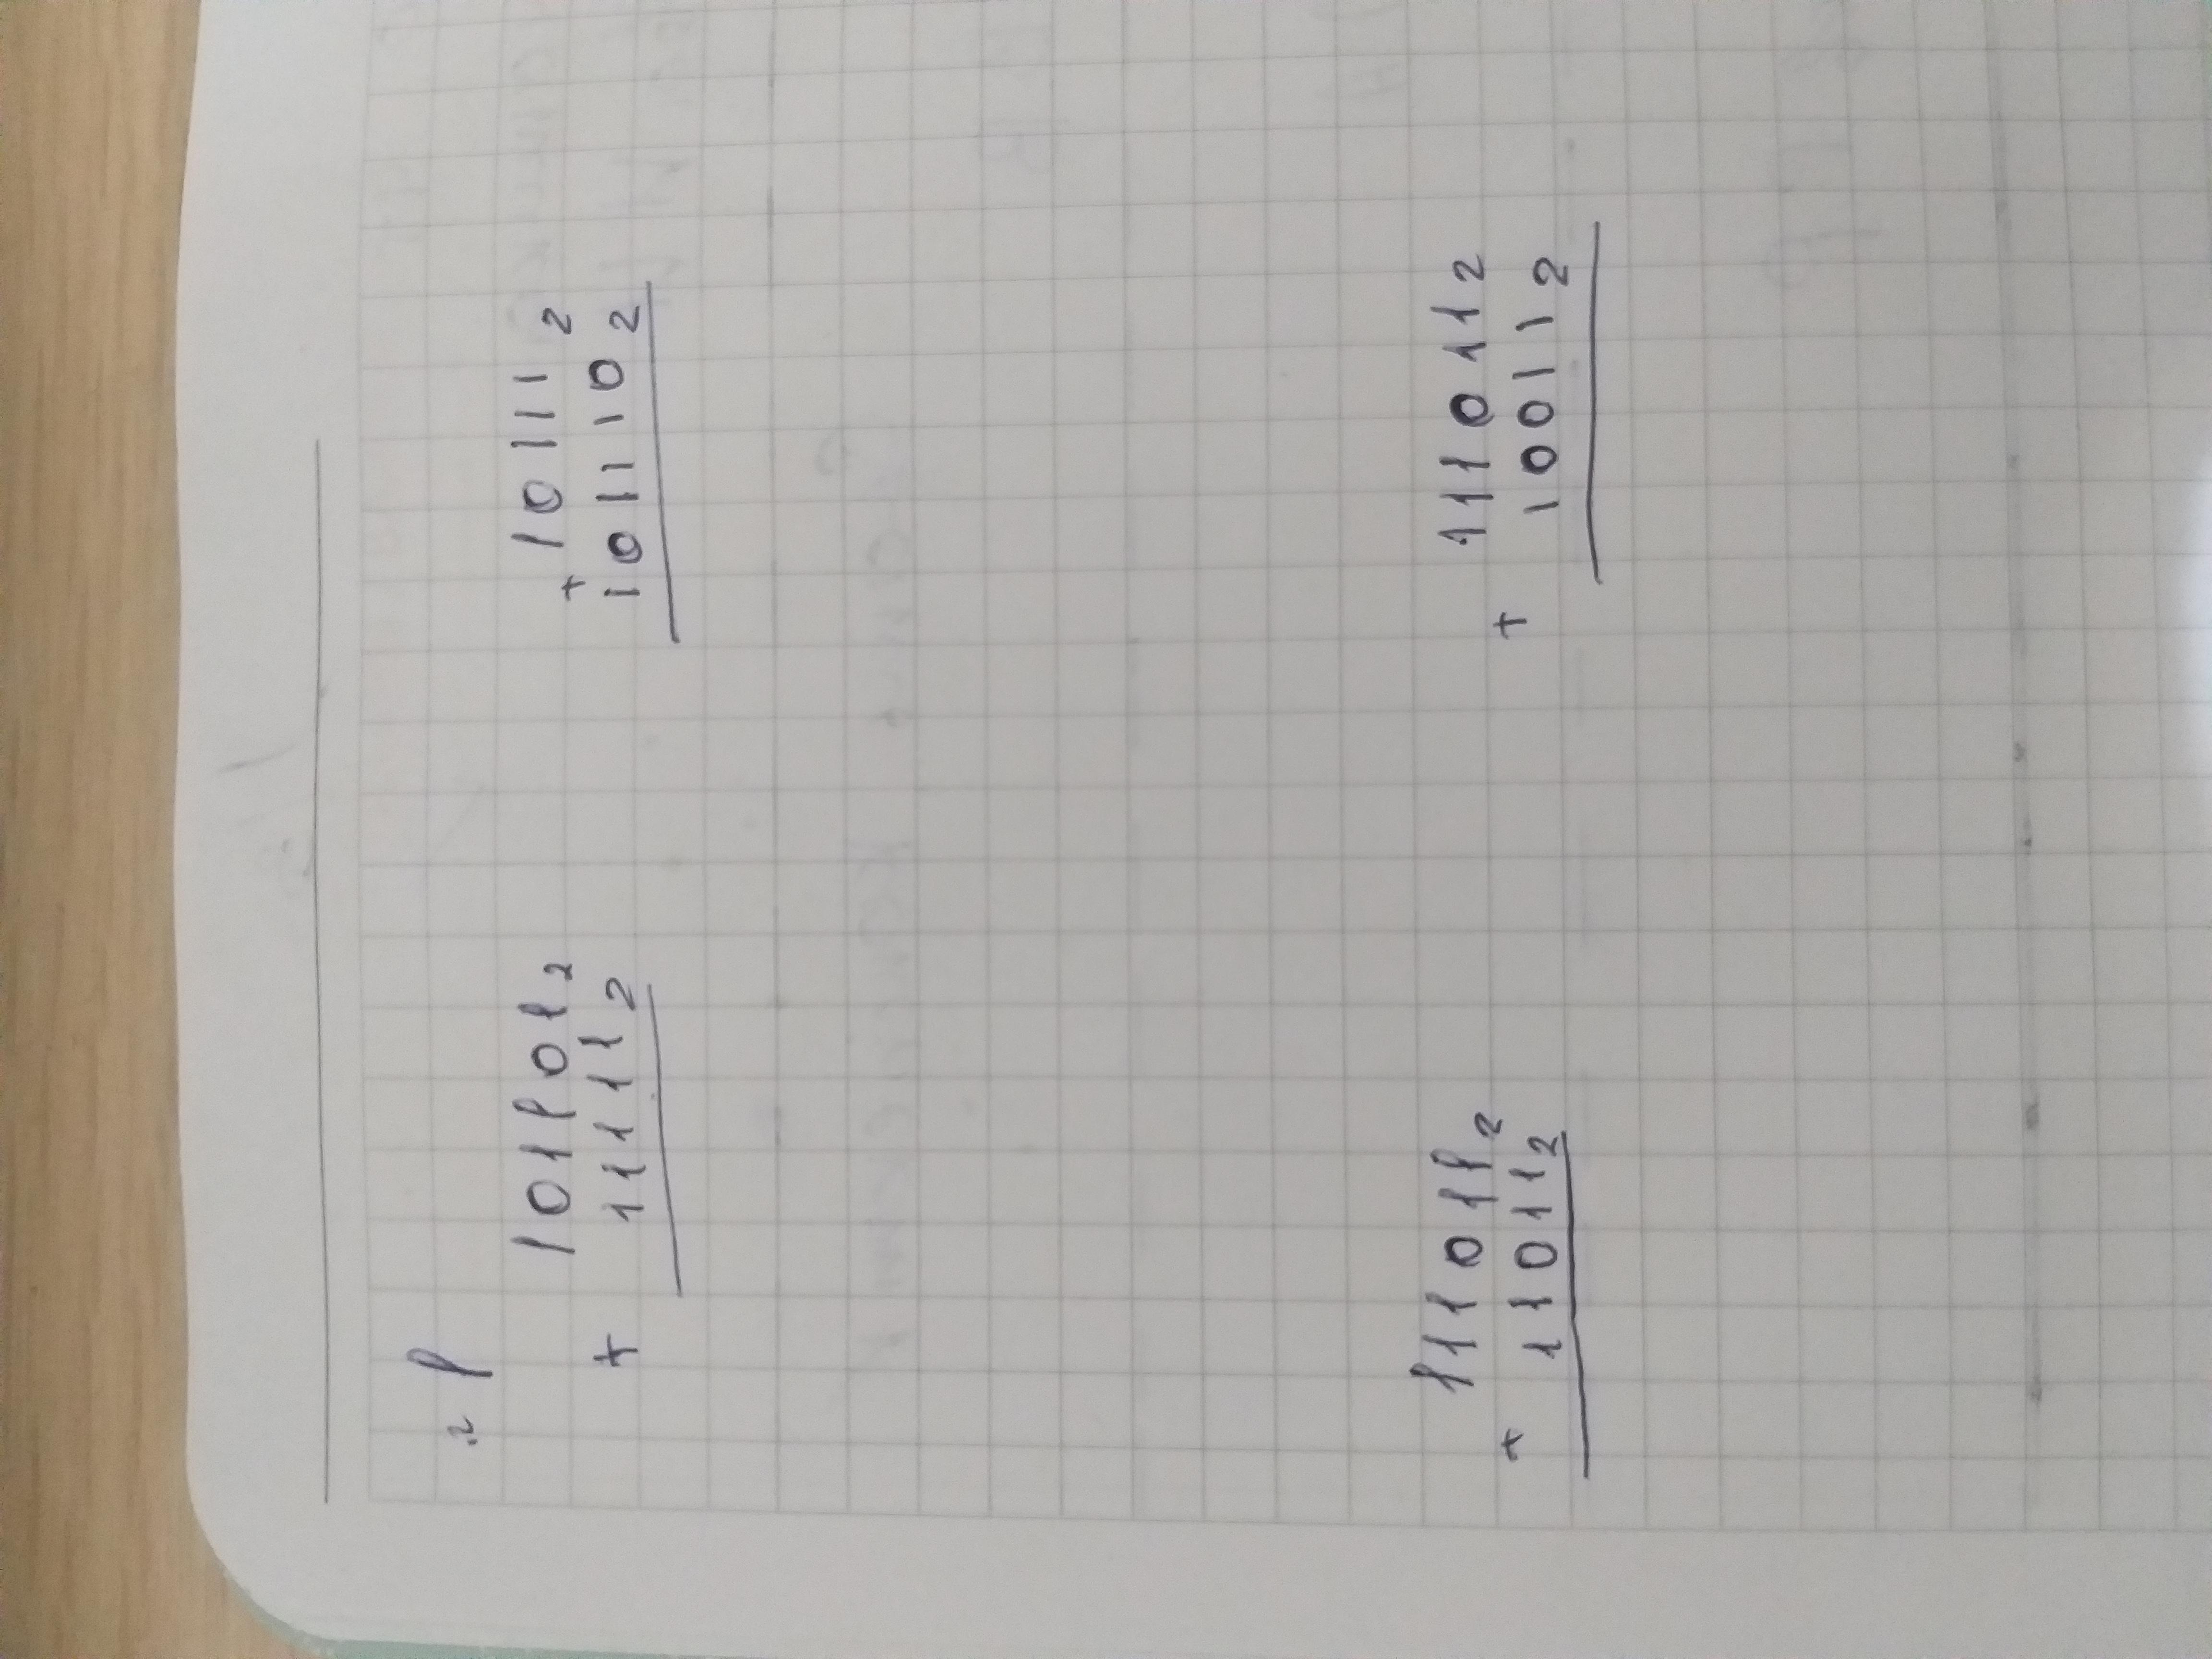 N 1
101101₂ 10111₂
+ 11111₂ + 101110₂
111011₂ 111011₂
+ 11011₂ + 10011₂